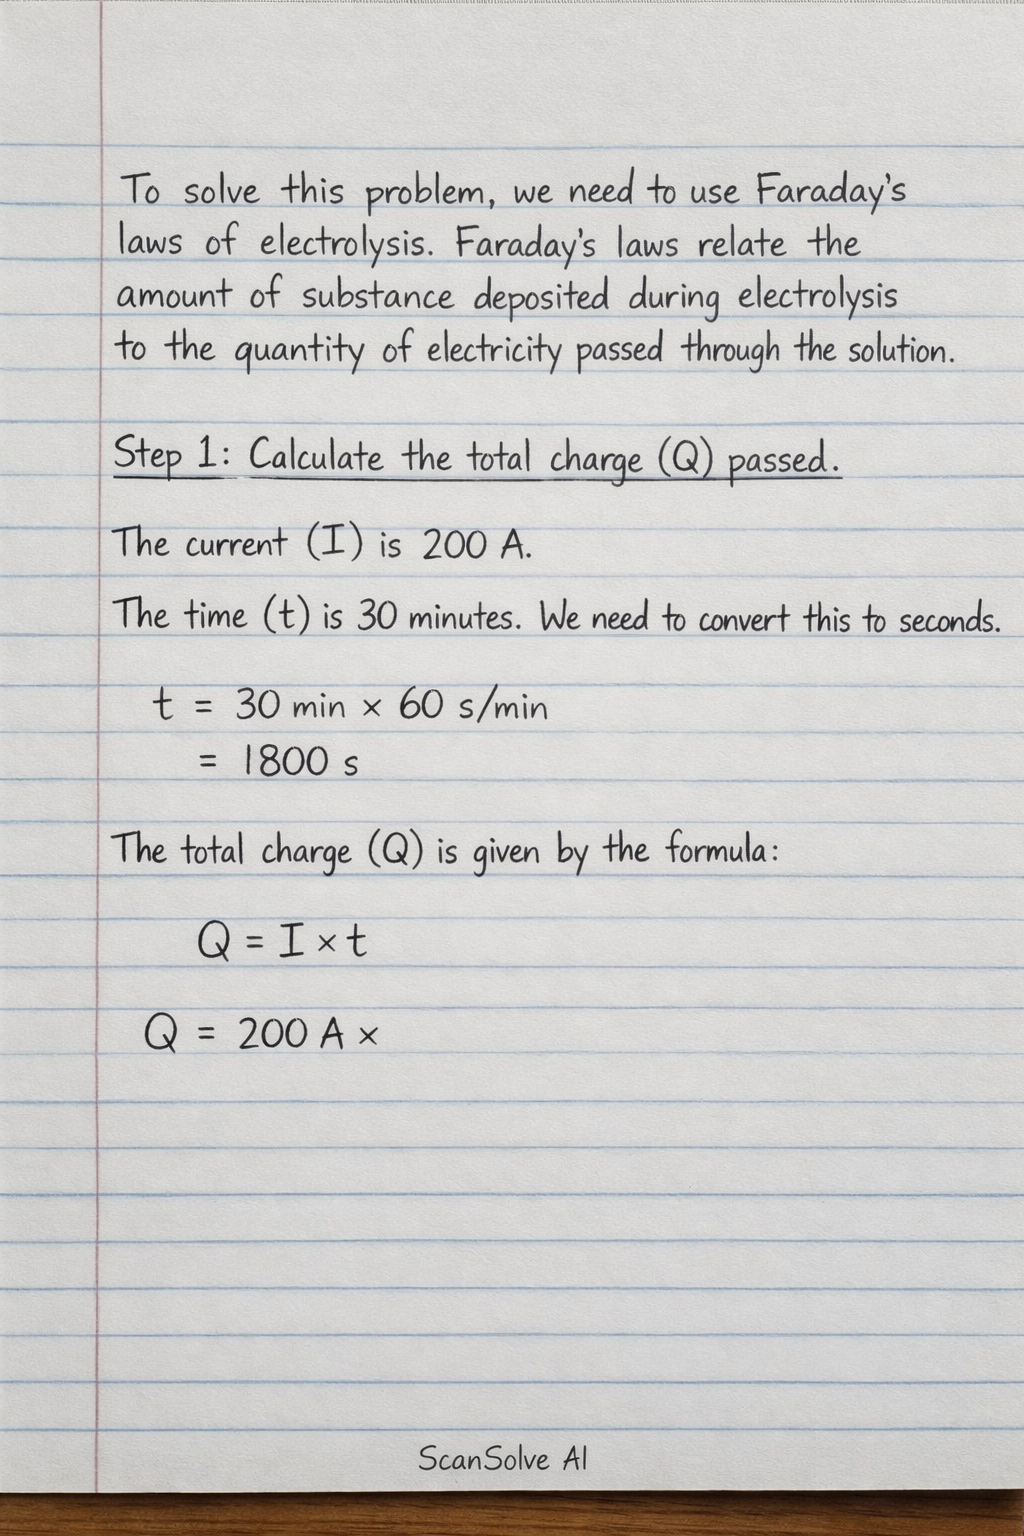 To solve this problem, we need to use Faraday's
laws of electrolysis. Faraday's laws relate the
amount of substance deposited during electrolysis
to the quantity of electricity passed through the solution.
Step 1: Calculate the total charge (Q) passed.
The current (I) is 200 A.
The time (t) is 30 minutes. We need to convert this to seconds.
t = 30 min × 60 s/min
= 1800 s
The total charge (Q) is given by the formula:
Q = I × t
Q = 200 A ×
ScanSolve AI